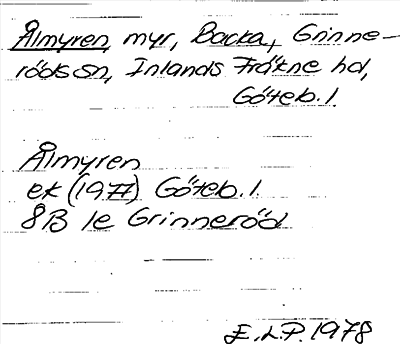 Ålmyren, myr, Backa, Grinne-
röds sn, Inlands Fräkne hd,
Göteb. l.
Ålmyren
ek (1977) Göteb. l.
8B 1e Grinneröd
E.L.P. 1978